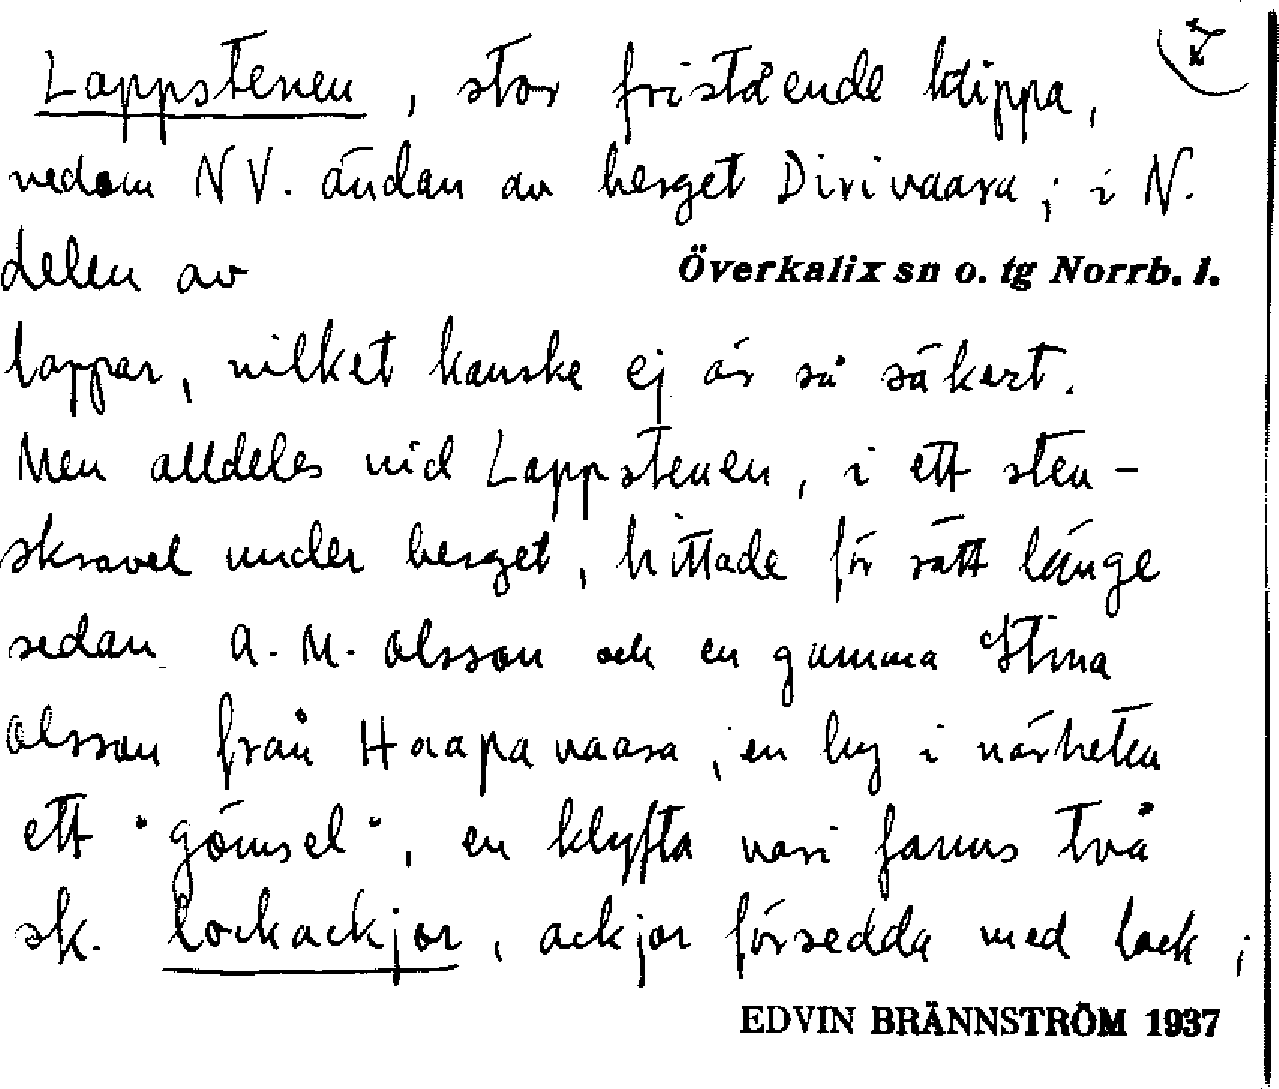 Lappstenen, stor fristående klippa,
nedom NV. ändan av berget Dirivaara; i N.
delen av Överkalix sn o. tg Norrb. l.
lappar, vilket kanske ej är så säkert.
Men alldeles vid Lappstenen, i ett sten-
skravel under berget, hittade för rätt länge
sedan A. M. Olsson och en gumma Stina
Olsson från Haapavaara, en by i närheten
ett "gömsel", en klyfta vari fanns två
sk. lockackjor, ackjor försedda med lock;
EDVIN BRÄNNSTRÖM 1937